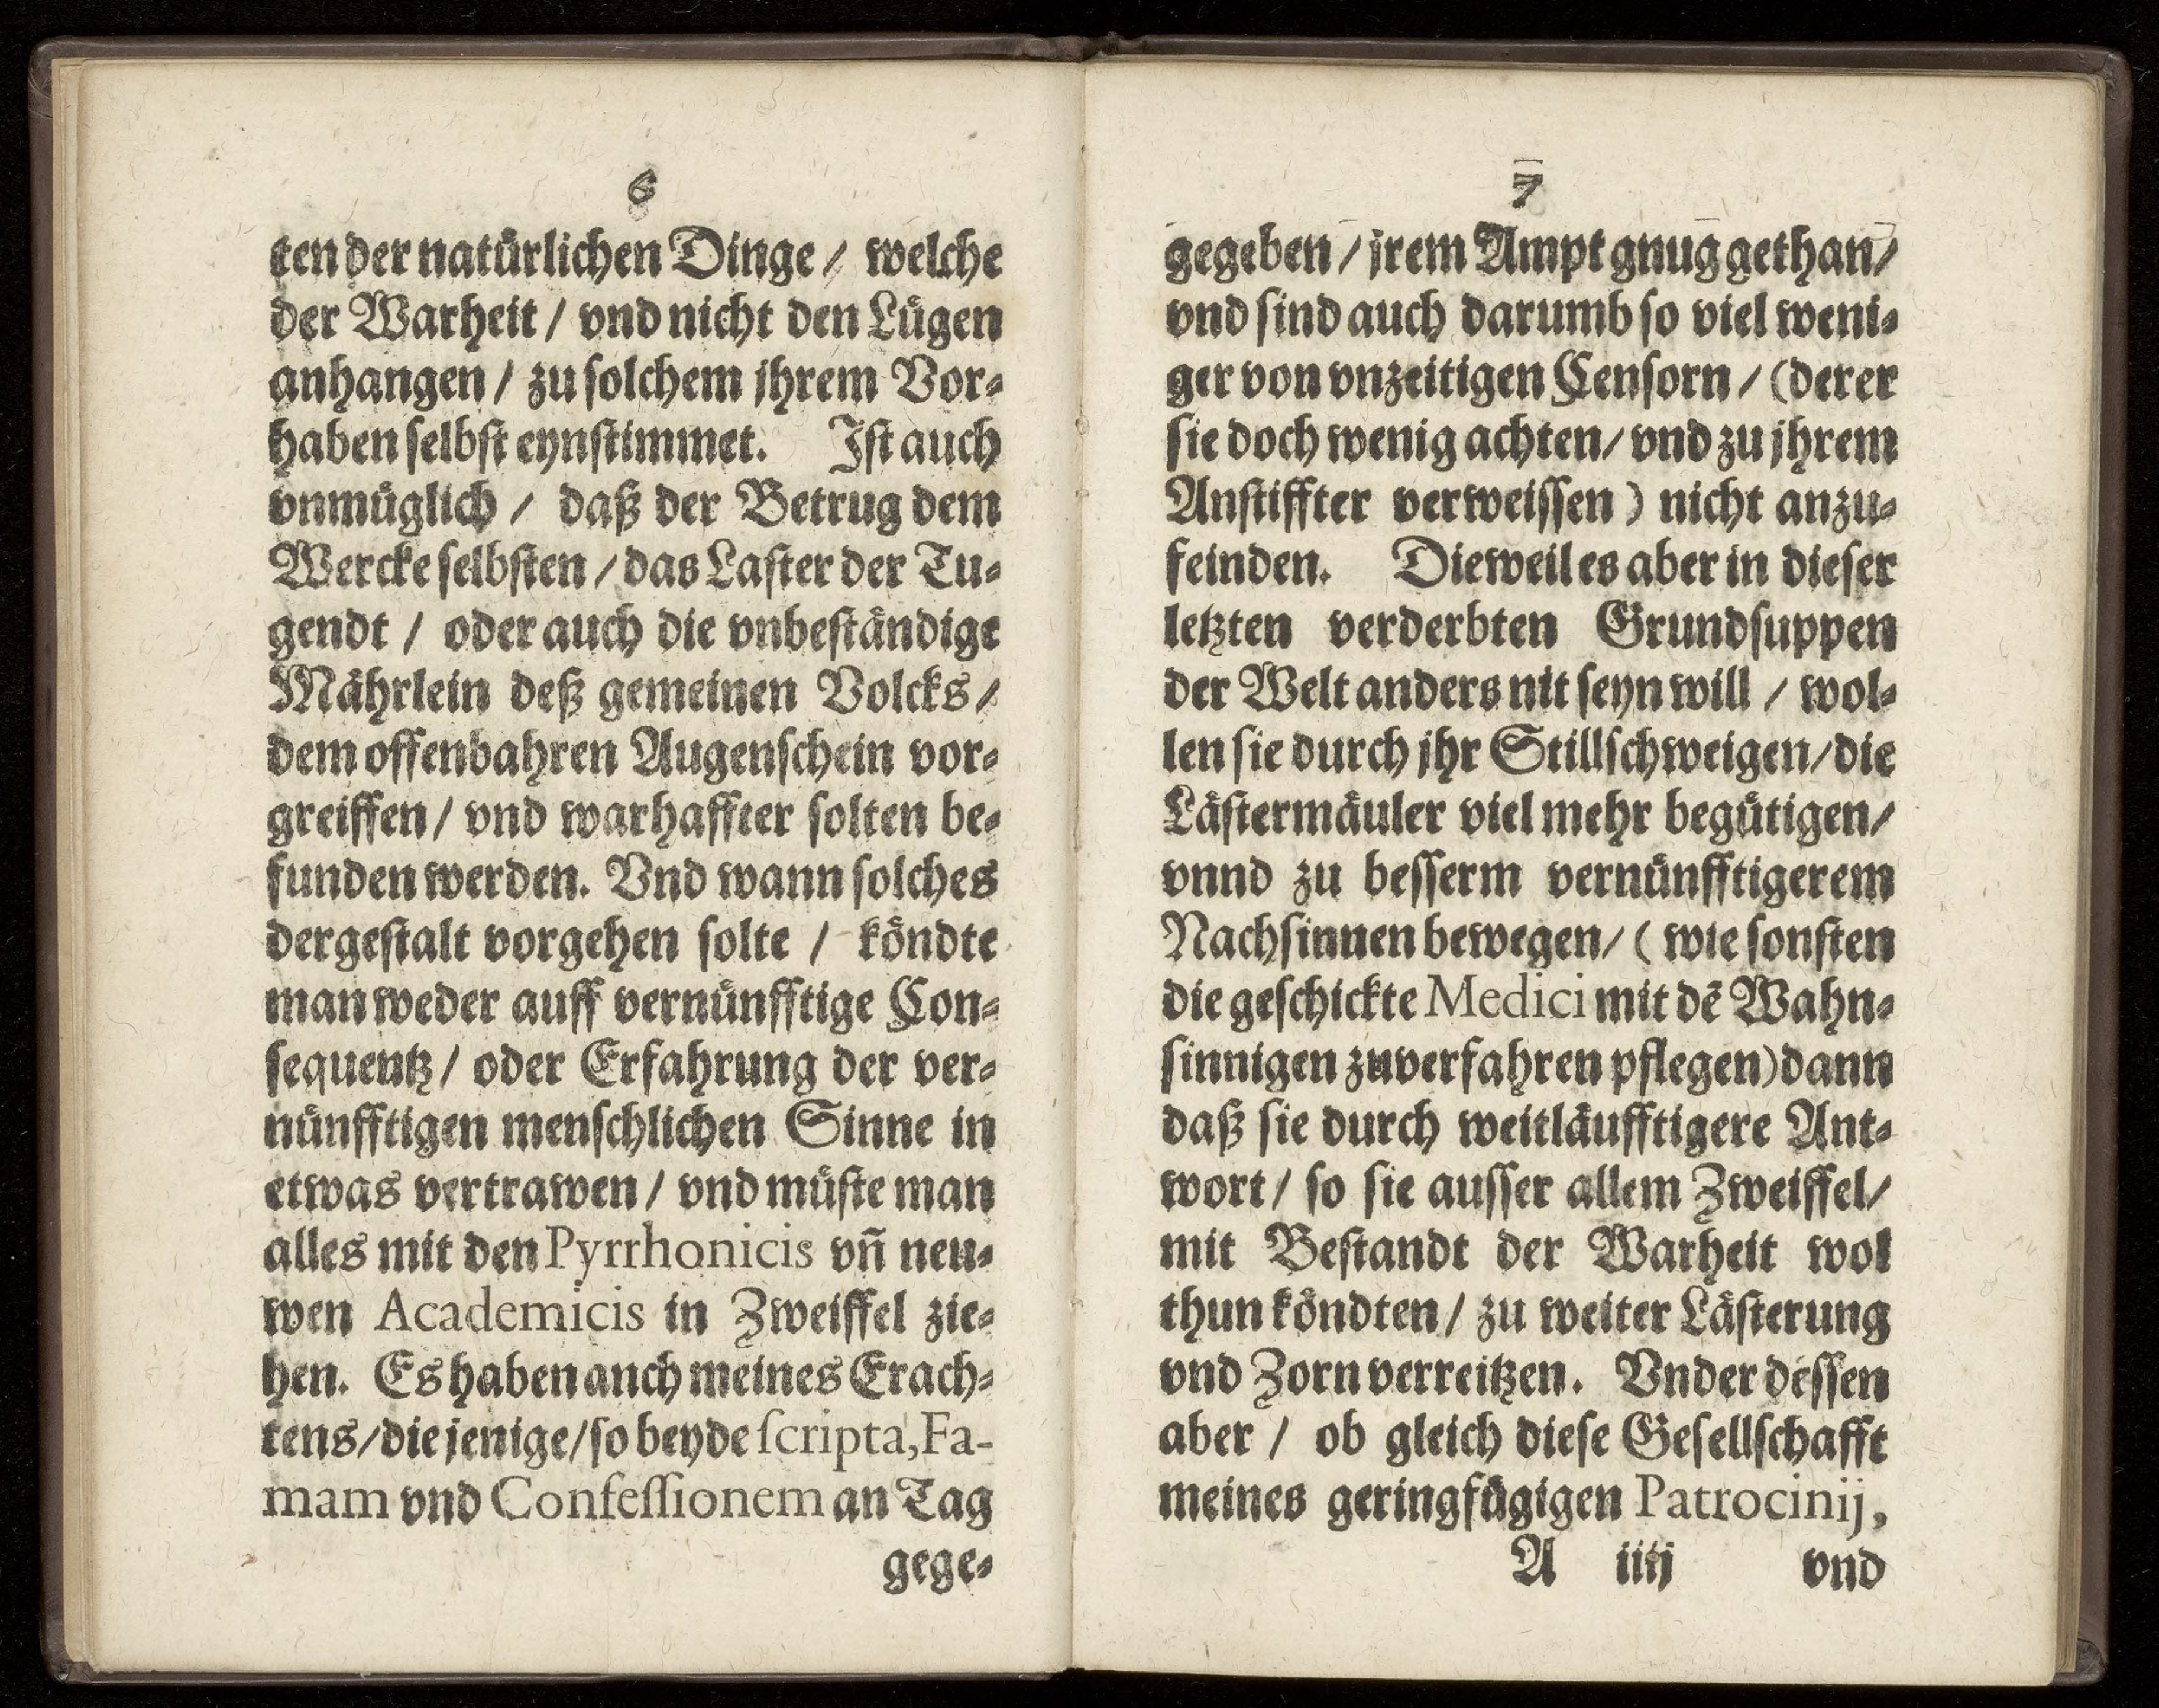 6
ten der natürlichen Dinge / welche
der Warheit / vnd nicht den Lügen
anhangen / zu solchem jhrem Vor⸗
haben selbst eynstimmet. Ist auch
vnmüglich / daß der Betrug dem
Wercke selbsten / das Laster der Tu⸗
gendt / oder auch die vnbeständige
Mährlein deß gemeinen Volcks /
dem offenbahren Augenschein vor⸗
greiffen / vnd warhaffter solten be⸗
funden werden. Vnd wann solches
dergestalt vorgehen solte / köndte
man weder auff vernünfftige Con⸗
sequentz / oder Erfahrung der ver⸗
nünfftigen menschlichen Sinne in
etwas vertrawen / vnd müste man
alles mit den Pyrrhonicis vñ neu⸗
wen Academicis in Zweiffel zie⸗
hen. Es haben anch meines Erach⸗
tens / die jenige / so beyde ſcripta, Fa-
mam vnd Confeſſionem an Tag
gege⸗
7
gegeben / jrem Ampt gnug gethan /
vnd sind auch darumb so viel weni⸗
ger von vnzeitigen Censorn / (derer
sie doch wenig achten / vnd zu jhrem
Anstiffter verweissen) nicht anzu⸗
feinden. Dieweil es aber in dieser
letzten verderbten Grundsuppen
der Welt anders nit seyn will / wol⸗
len sie durch jhr Stillschweigen / die
Lästermäuler viel mehr begütigen /
vnnd zu besserm vernünfftigerem
Nachsinnen bewegen / ( wie sonsten
die geschickte Medici mit dē Wahn⸗
sinnigen zuverfahren pflegen) dann
daß sie durch weitläufftigere Ant⸗
wort / so sie ausser allem Zweiffel /
mit Bestandt der Warheit wol
thun köndten / zu weiter Lästerung
vnd Zorn verreitzen. Vnder dessen
aber / ob gleich diese Gesellschafft
meines geringfügigen Patrocinij,
A iiij vnd